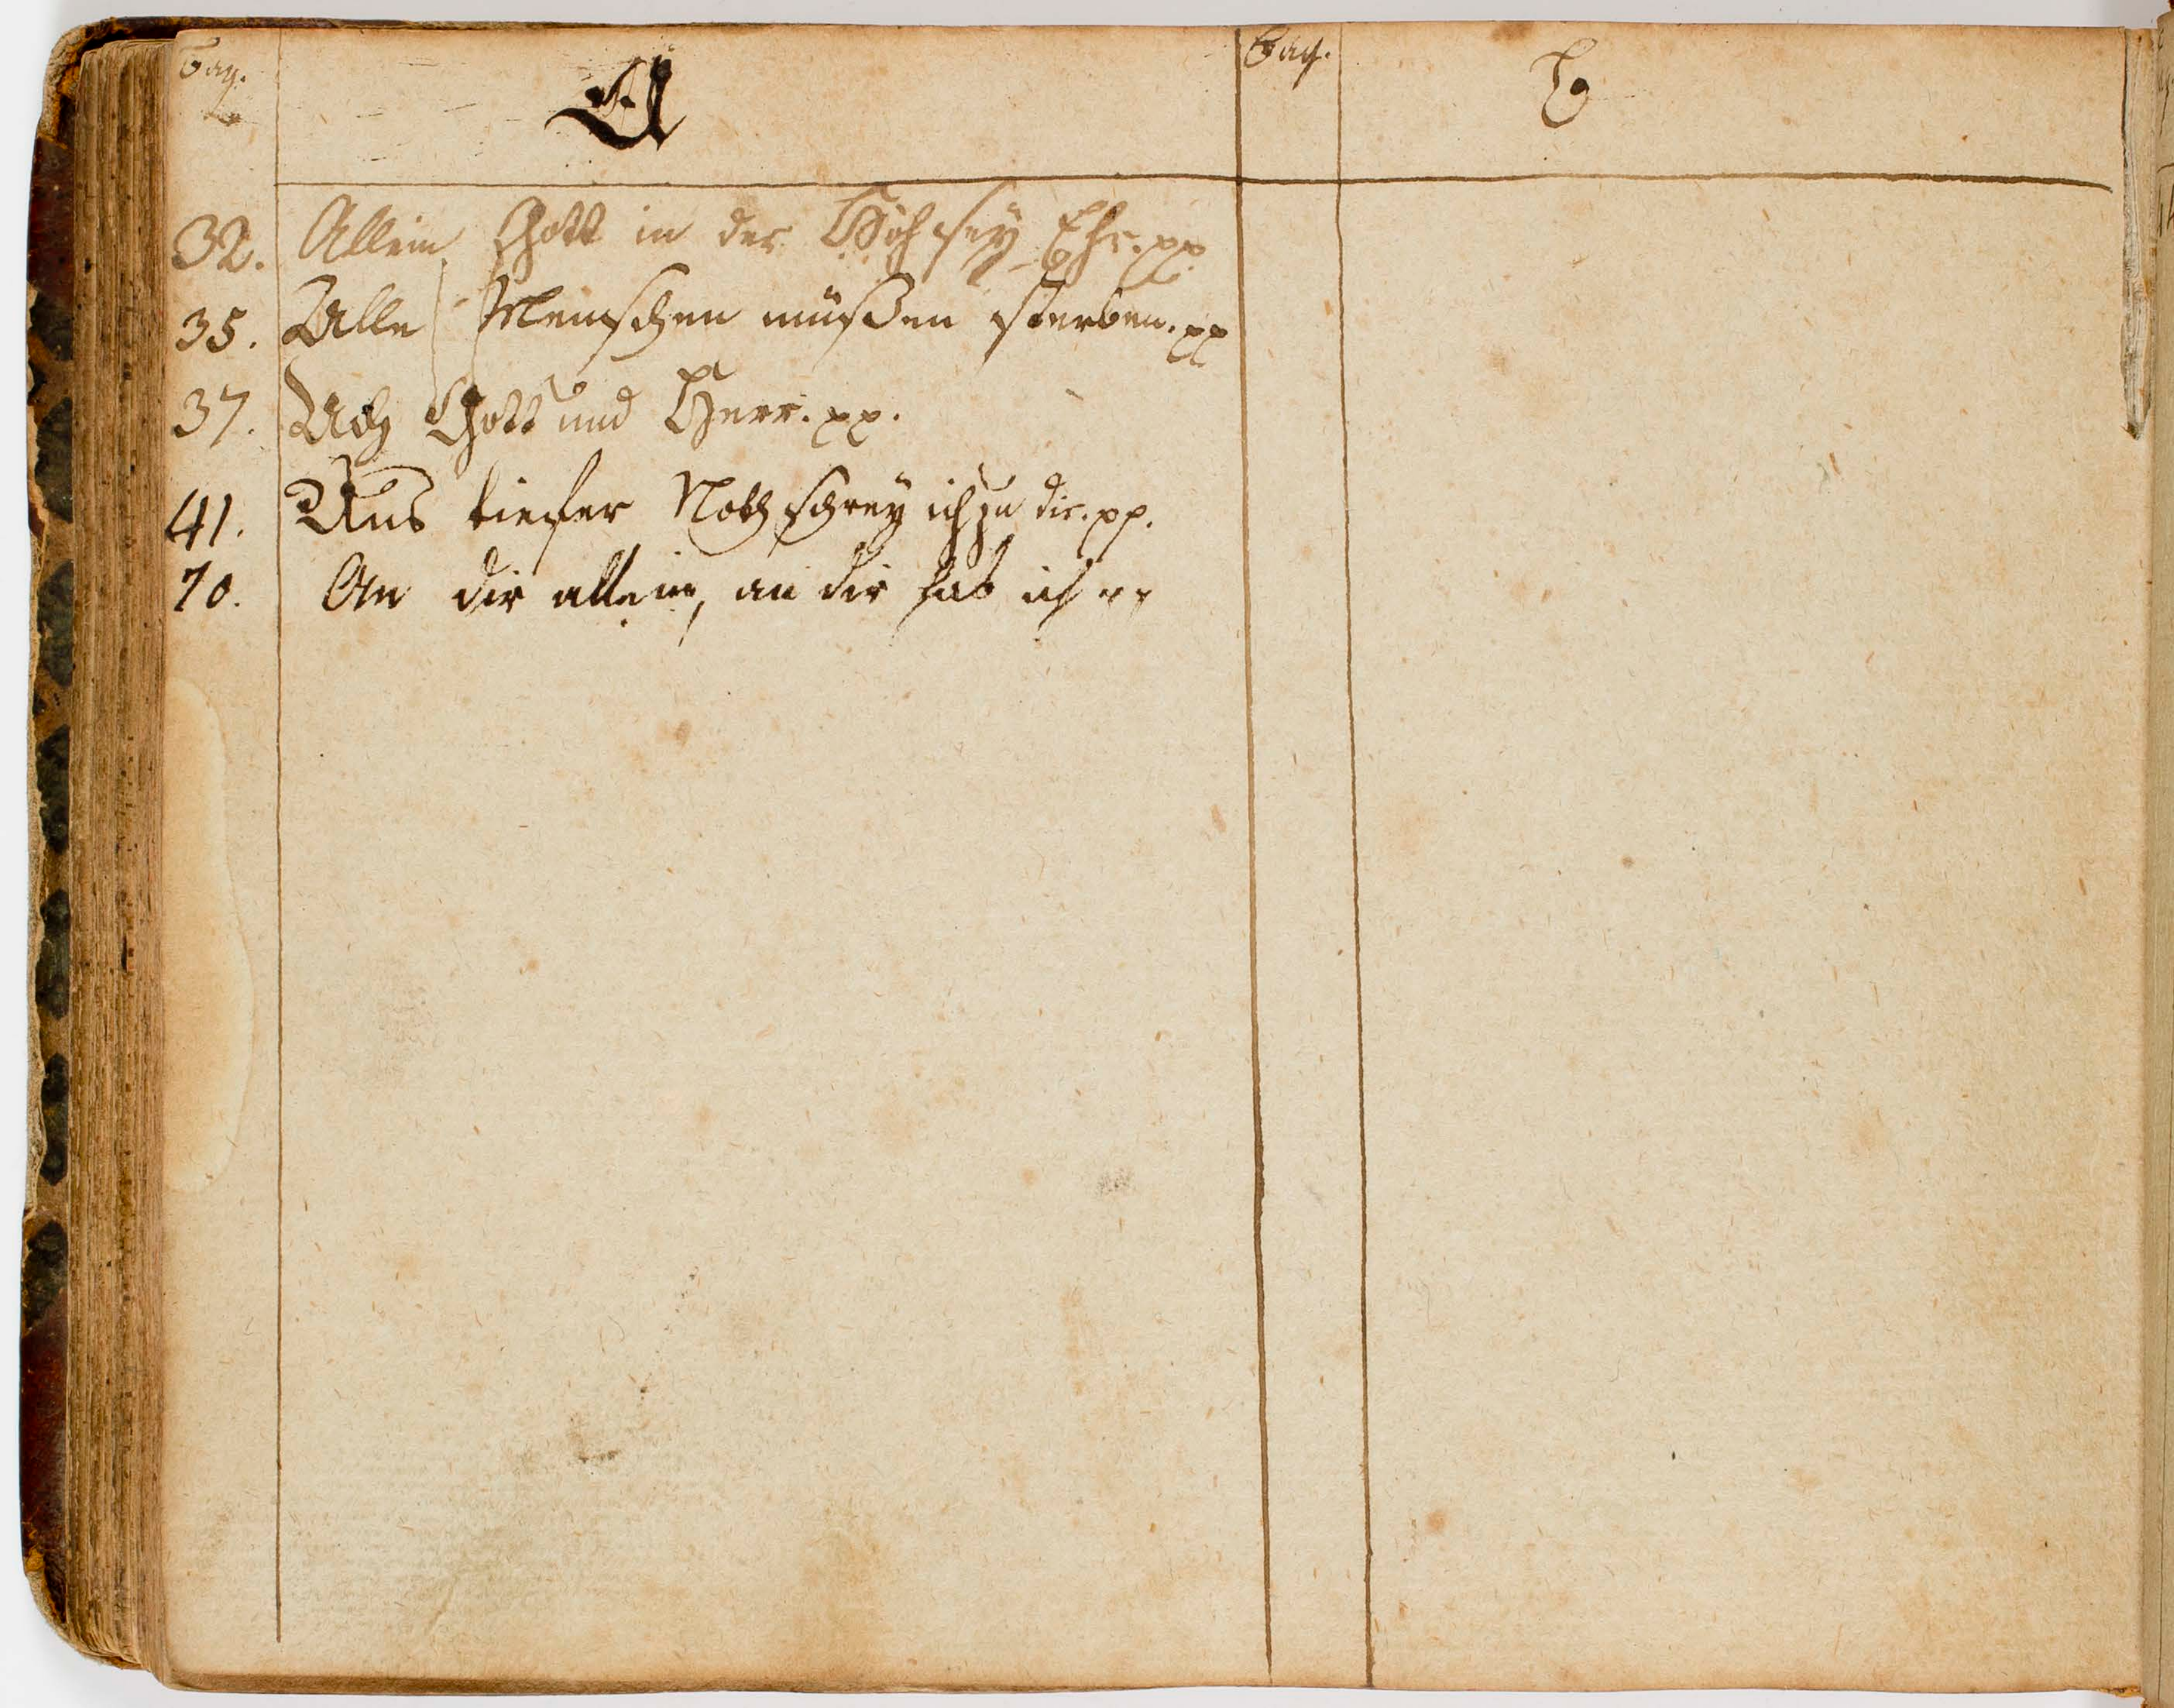 Pag.
A
32. Allein Gott in der Höh sey Ehr. pp
35. Alle Menschen müßen sterben. pp
37. Ach Gott und Herr. pp.
41. Aus tiefer Noth schrey ich zu dir. pp.
70. An dir allein, an dir hab ich pp
Pag.